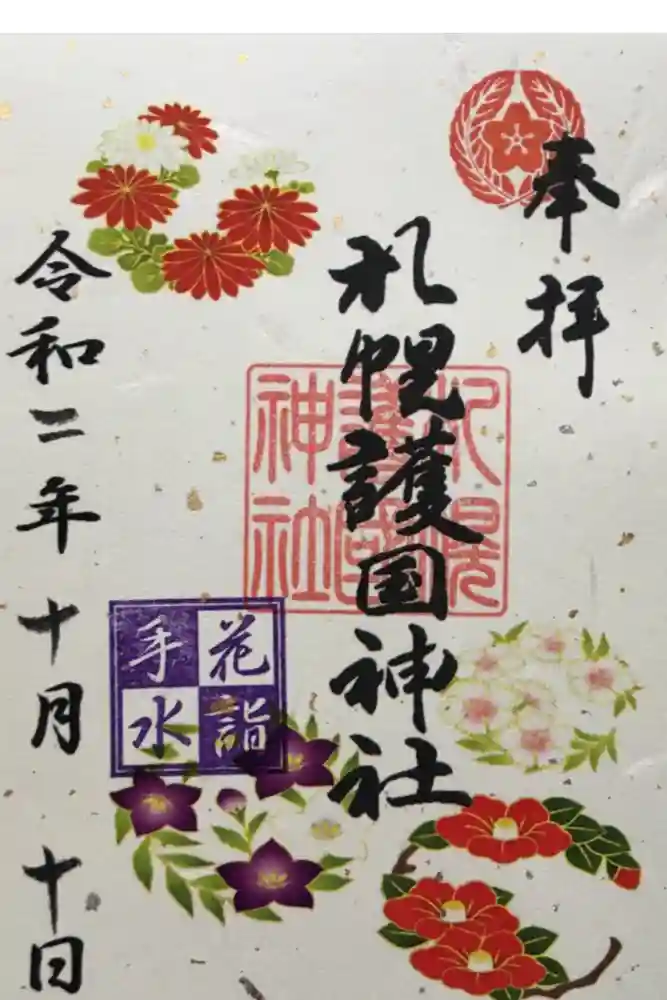 奉拝
札幌護国神社
札幌
護國
神社
花詣
手水
令和二年十月十日